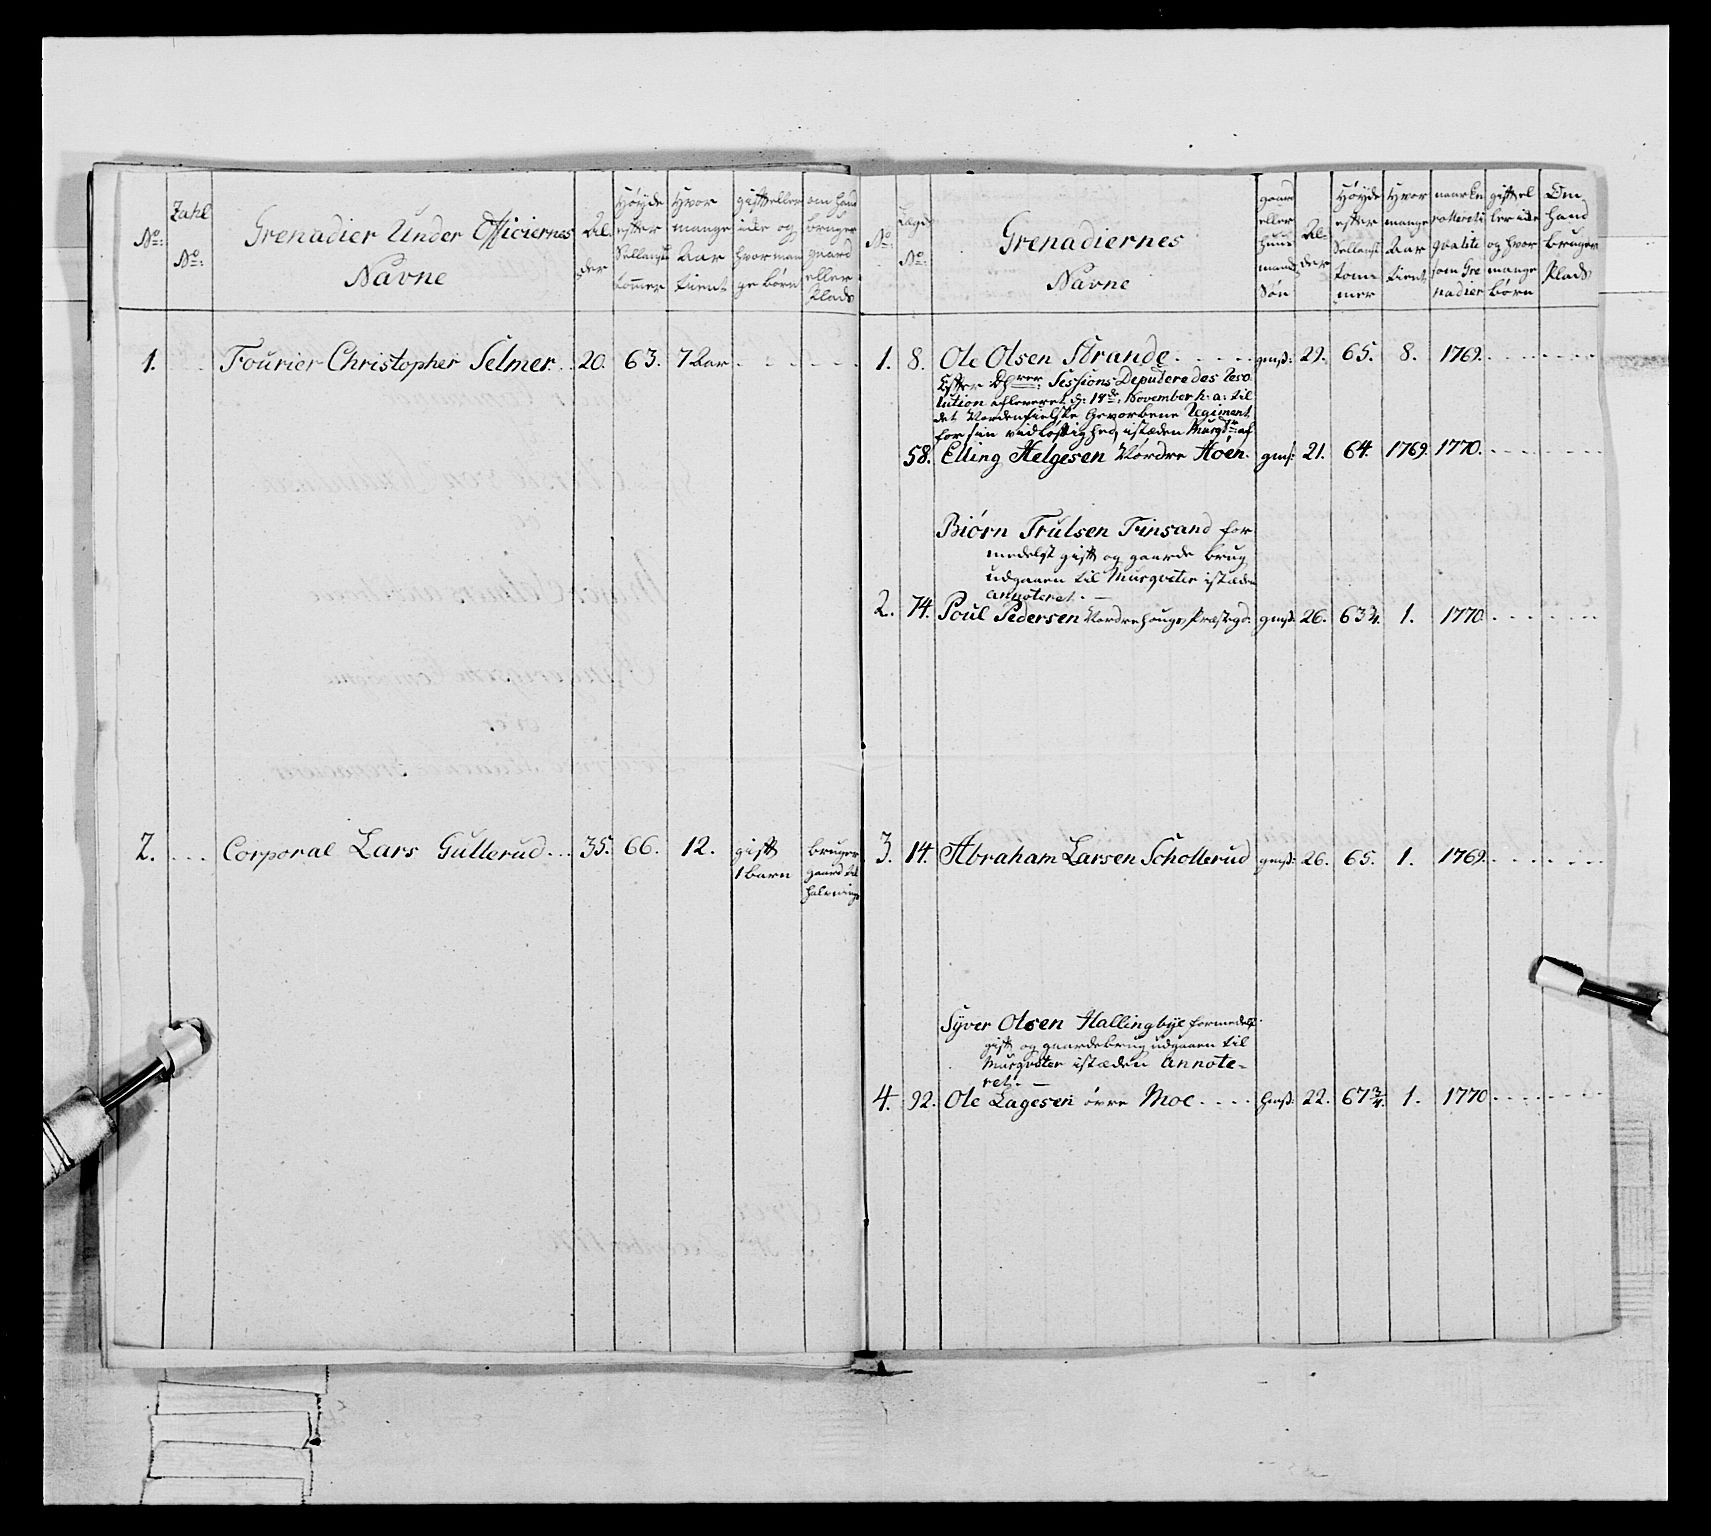 No: Zahl No: Grenadier Under Officiernes Navne Al- der Høyde efter Sellansk tommer Hvor mange Aar tient gift eller icke og hvor man ge børn om hand bruger gaard eller Plads
1. Fourier Christopher Selmer 20. 63. 7 Aar
2. Corporal Lars Gullerud 35. 66. 12. gift 1 barn bruger gaard til halvning
No: Lægd No: Grenadiernes Navne gaard eller huus mands Søn Al- der Høyde efter Sellansk tom mer Hvor mange Aar tient qvalite som Gre nadier gift el ler icke og hvor mange børn Om hand bruger Plads
1. 8. Ole Olsen Strande 29. 65. 8. 1769.
Efter Sessions Deputeredes Reso
lution afleveret d: 14de November h: a: til
det Nordenfielske Gevorbene Regiment
for sin vidløftighed, istæden af
58. Elling Helgesen Nordre Hoen. 21. 64. 1769. 1770.
Biørn Trulsen Finsand for
medelst gift og gaarde brug
udgaaen til Musqvetér istæden
annoteret. —
2. 74. Poul Pedersen Nordrehougs Præstegd. gmß: 26. 63¾. 1. 1770.
3. 14. Abraham Larsen Schollerud gmß: 26. 65. 1. 1769.
Syver Olsen Hallingbye formedelst
gift og gaardebrug udgaaen til
Musqveter istæden Annote-
ret. —
4. 92. Ole Lagesen øvre Moe hmß: 22. 67¾. 1. 1770